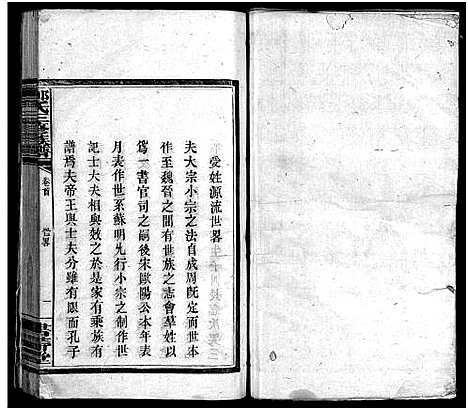 受姓源流世畧
夫大宗小宗之法自成周既定而世本
作至魏晉之時有世族之志會萃姓以
爲一書官司之嗣後宋歐陽公本年表
月表作世系蘇明允先行小宗之制作世
記士大夫相與效之於是家有乘族有
譜焉夫帝王與士夫分雖有限而孔子
卷首
世畧
一